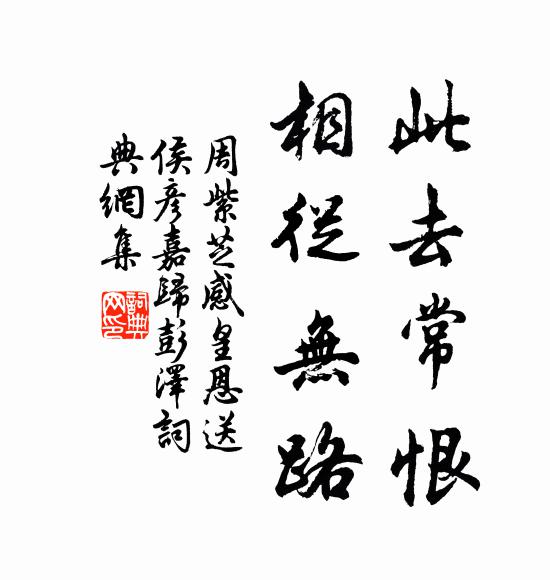 此去常恨
相從無路
周紫芝感皇恩送
侯彥嘉歸彭澤詞
典網集
詞典
网印